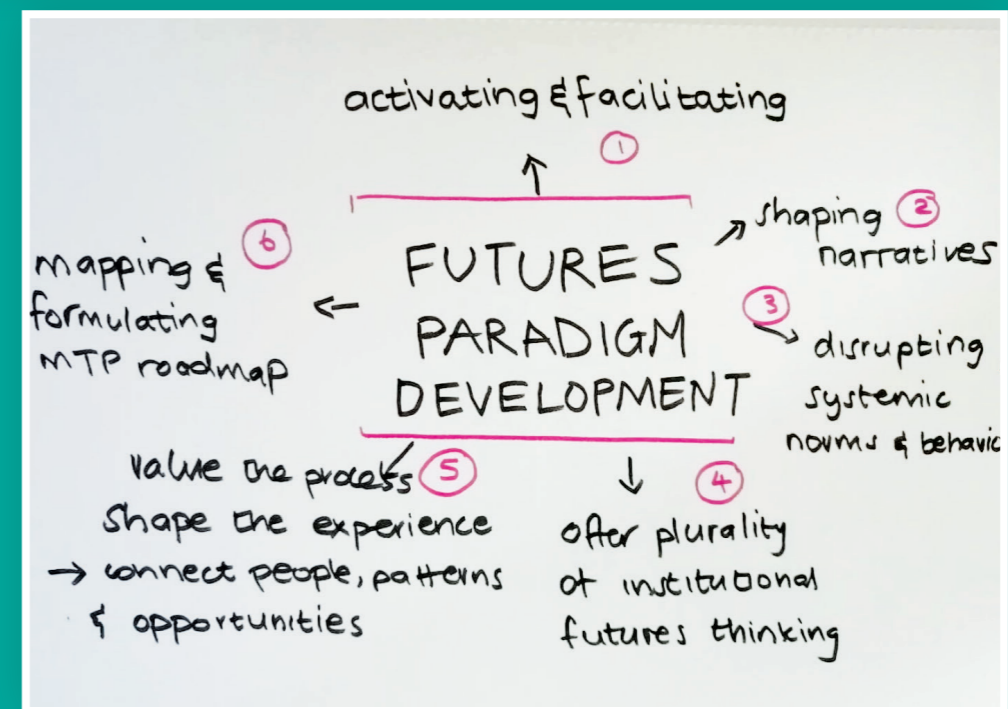 activating & facilitating
1
FUTURES
PARADIGM
DEVELOPMENT
shaping 2
narratives
3
disrupting
systemic
norms & behavio
4
offer plurality
of institutional
futures thinking
value the process 5
shape the experience
→ connect people, patterns
& opportunities
6
mapping &
formulating
MTP roadmap